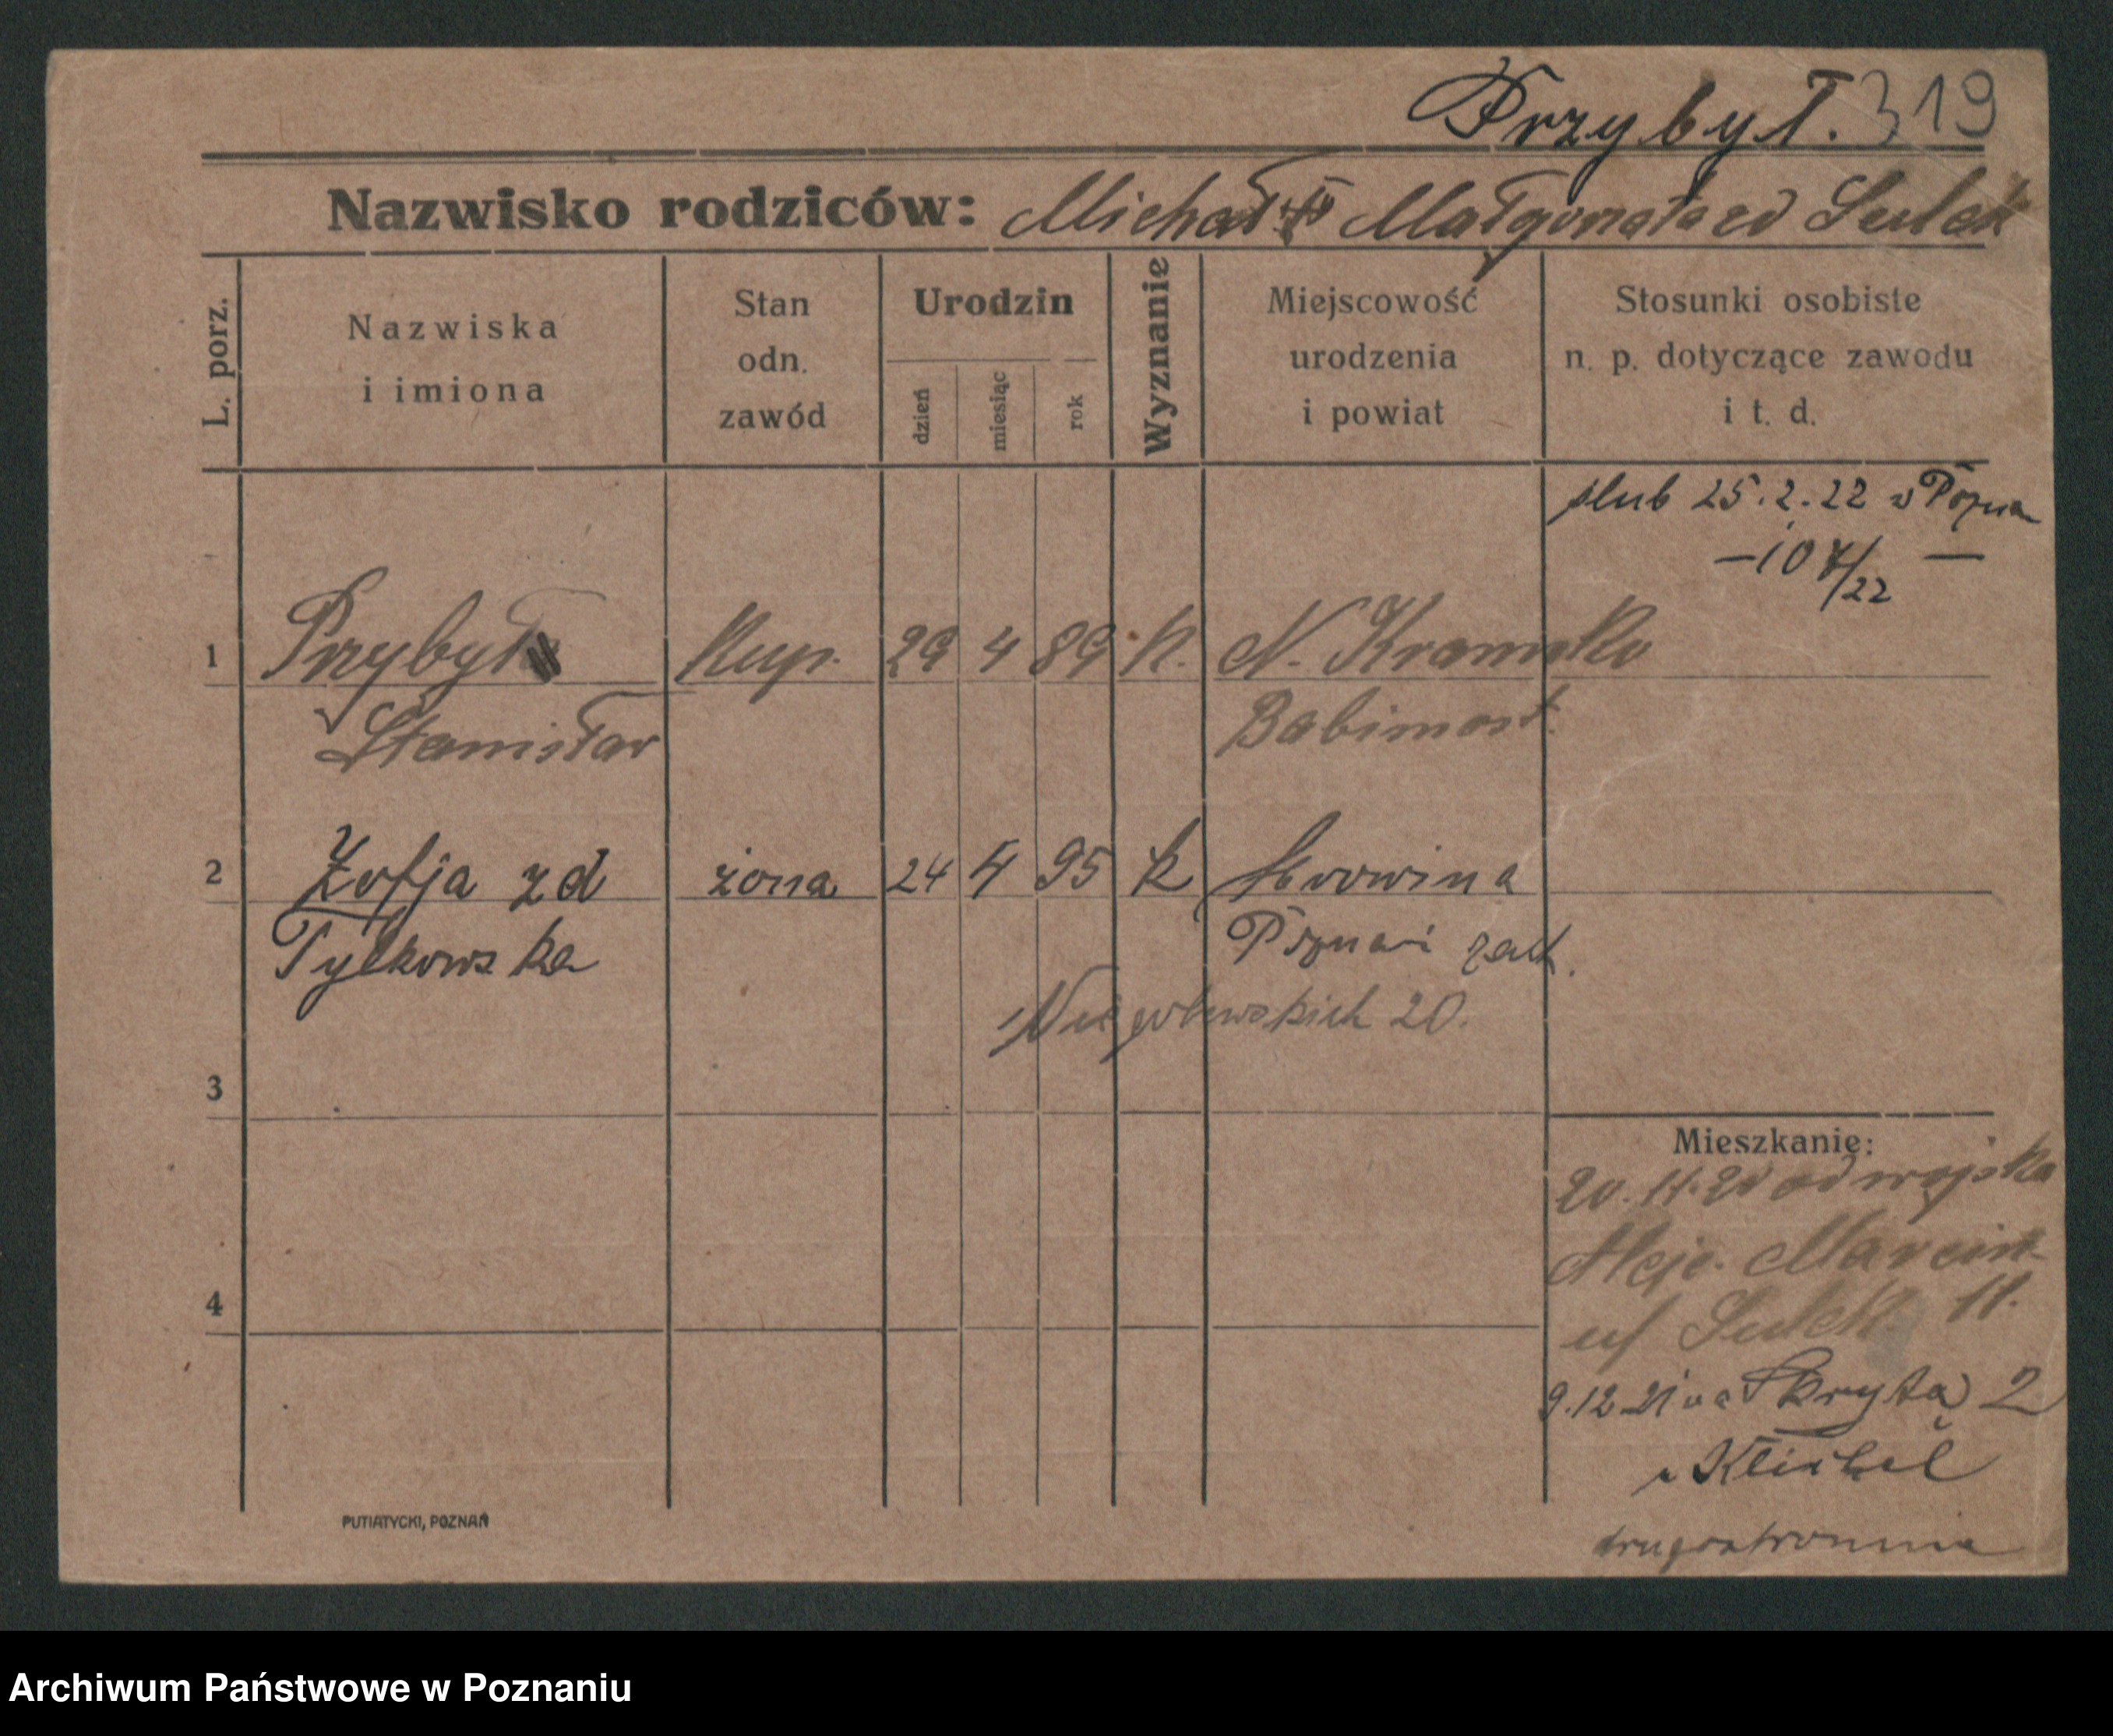 Przybył. 319
Nazwisko rodziców: Michał Małgorzata zd Sulek
L. porz.
Nazwiska i imiona
Stan odn. zawód
Urodzin
dzień miesiąc rok
Wyznanie
Miejscowość urodzenia i powiat
Stosunki osobiste n. p. dotyczące zawodu i t. d.
ślub 25.2.22 w Pozna
— 107/22 —
1 Przybył Kup. 29 4 89 k. N. Kramsko
Stanisław Babimost.
2 Zofja zd żona 24 4 95 k Mrowina
Tylkowska Poznań zach.
Niegolewskich 20.
3
Mieszkanie:
20.11.20 od wojska
Aleje. Marcink
4
u/ Sulek 11.
9.12.21 na Skryta 2
u
drugostronnie
PUTIATYCKI, POZNAŃ
Archiwum Państwowe w Poznaniu